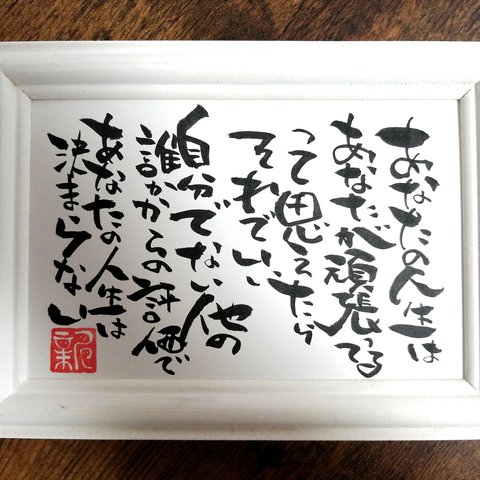 あなたの人生は
あなたが頑張ってる
って思えたら
それでいい
自分でない他の
誰かからの評価で
あなたの人生は
決まらない